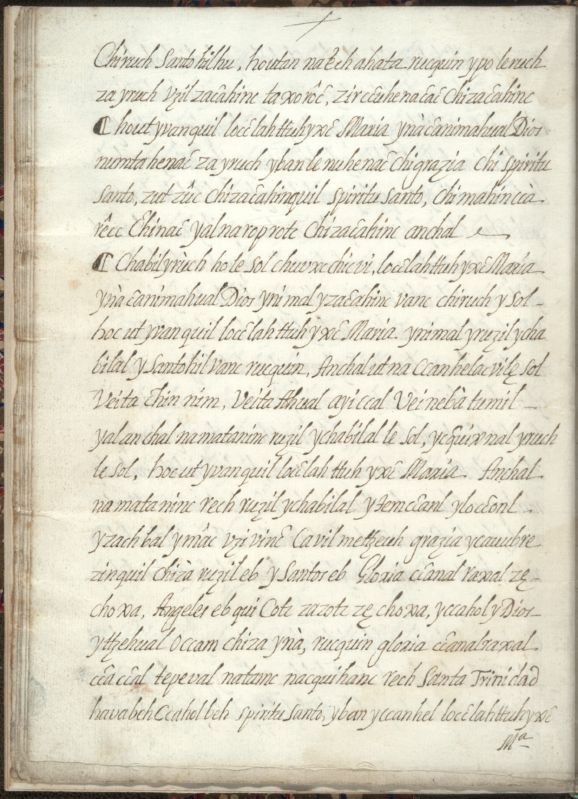 Chiruch Santohilhu, houton natzeh ahata rucquin ypoleruch
za yruch Vzil zacahinc taxoroc, zirctuhenacac Chizacahinc
hout yvanquil loccLahttuhyxc Maria yna canimahual Dios
numta henac za yruch yban le nuhenac chi grazia chi spiritu
Santo, zut zuc chizacahinquil spiritu santo, Chimahincca
recc Chinac yalnareprote Chizacahinc anchal
Chabil yruch ho le Sol chuvxchicvi, loccLahttuhyxc Maria
yna canimahual Dios ynimal yzacahinc vanc chiruch y Sol
hoc ut yvanquil loccLahttuhyxc Maria. ynimal yruzil ycha
bilal y Santohil vanc rucquin, Anchal ut na Ccanhelac vile Sol
Veita Chin nim, Veita Ahual ayiccal Vei neba tumil
yal anchal namataninc ruzil ychabilal le Sol, ycquixnal yruch
le Sol, hoc ut yvanquil loccLahttuhyxc Maria. Anchal
na mataninc rech ruzil ychabilal ytemccanl yloccenl
yzachbal ymac vzivinc Cavil metzeuh grazia ycauubre
zinquil chiza ruzileb y Santoseb Gloria ccanal raxal ze
choxa, Angeles eb qui Cotc zazotc ze choxa, yccahol y Dios
yttzehual Occam chiza yna, rucquin gloria ccanal raxal
ccaccal tepeval natanc nacquihanc rech Santa Trinidad
havabeh Ccahelbeh spiritu Santo, yban yccanhel loccLahttuhyxc
Ma